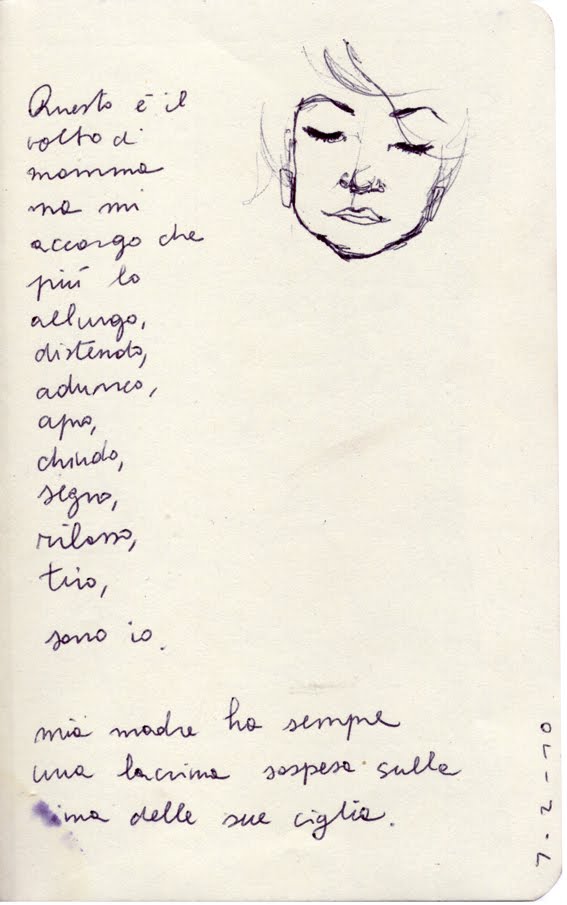 Questo è il
volto di
mamma
ma mi
accorgo che
più lo
allungo,
distendo,
adunco,
apro,
chiudo,
segno,
rilasso,
tiro,
sono io.
mia madre ha sempre
una lacrima sospesa sulla
cima delle sue ciglia.
7-2-10